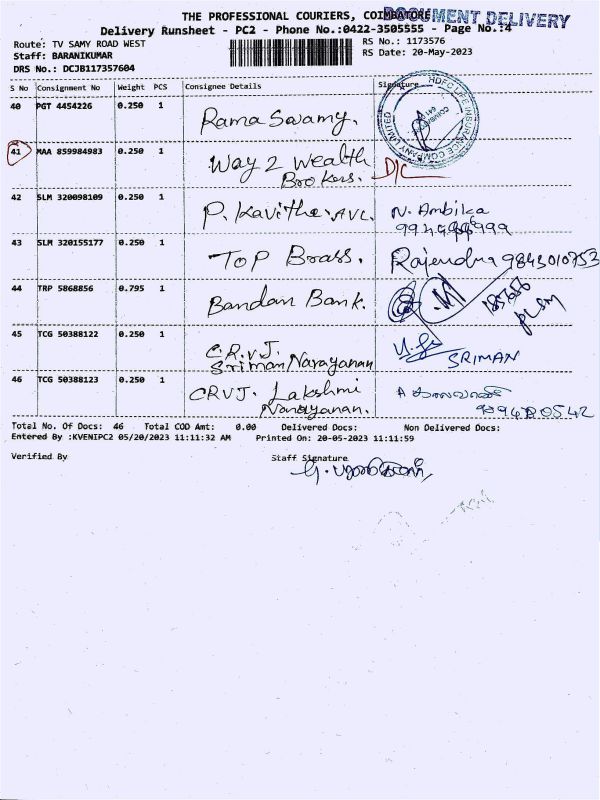 THE PROFESSIONAL COURIERS, COIMBATORE
DOCUMENT DELIVERY
Delivery Runsheet - PC2 - Phone No.:0422-3505555 - Page No.:4
Route: TV SAMY ROAD WEST
RS No.: 1173576
Staff: BARANIKUMAR
RS Date: 20-May-2023
DRS No.: DCJB117357604
S No Consignment No Weight PCS Consignee Details Signature
40 PGT 4454226 0.250 1 Rama Swamy.
HDFC LIFE INSURANCE COMPANY LIMITED
COIMBATORE
41 MAA 859984983 0.250 1 Way 2 Wealth
Brokers. D/C
42 SLM 320098109 0.250 1 P. Kavitha. AVL. N. Ambika
43 SLM 320155177 0.250 1 TOP Brass. Rajendra 9843010753
44 TRP 5868856 0.795 1 Bandan Bank.
45 TCG 50388122 0.250 1 C.R.V.J.
Sriman Narayanan SRIMAN
46 TCG 50388123 0.250 1 CRVJ. Lakshmi
Narayanan.
Total No. Of Docs: 46 Total COD Amt: 0.00 Delivered Docs: Non Delivered Docs:
Entered By :KVENIPC2 05/20/2023 11:11:32 AM Printed On: 20-05-2023 11:11:59
Verified By Staff Signature